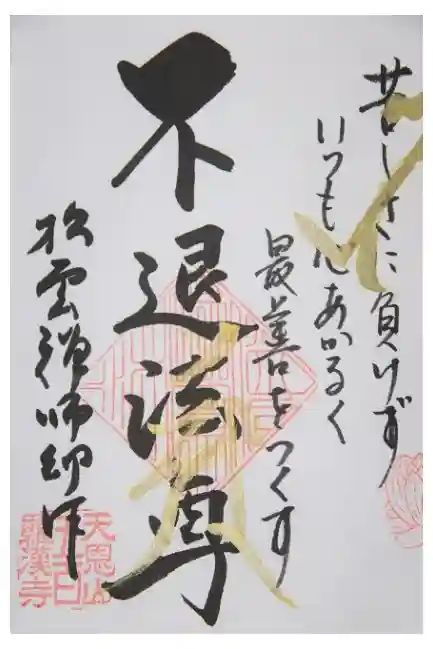 苦しさに負けず
いつも心あかるく
最善をつくす
不退法尊
松雲禅師御作
天恩山
五百
羅漢寺